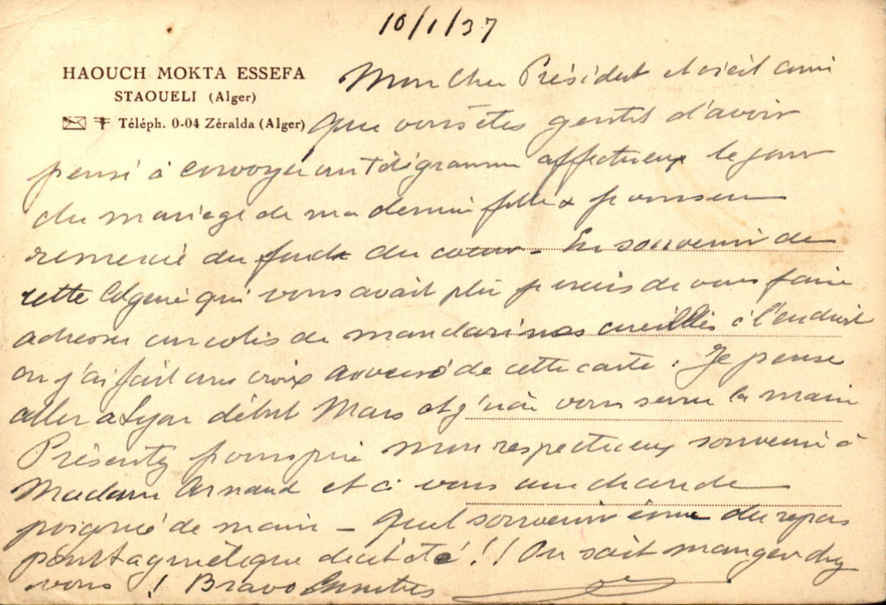 10/1/37
HAOUCH MOKTA ESSEFA
STAOUELI (Alger)
Téléph. 0-04 Zéralda (Alger)
Mon Cher Président et vieil ami
Que vous êtes gentil d'avoir
pensé à envoyer un télégramme affectueux le jour
du mariage de ma dernière fille &
remercie du fond du coeur - En souvenir de
cette Algérie qui vous avait plu je viens de vous faire
adresser un colis de mandarines cueillies à l'endroit
où j'ai fait une croix au verso de cette carte. Je pense
aller à Lyon début Mars et j'irai vous serrer la main
Présentez mon respectueux souvenir à
Madame Arnaud et à vous une chaude
poignée de main - Quel souvenir ému du repas
pantagruélique de cet été !! On sait manger chez
vous ! Bravo